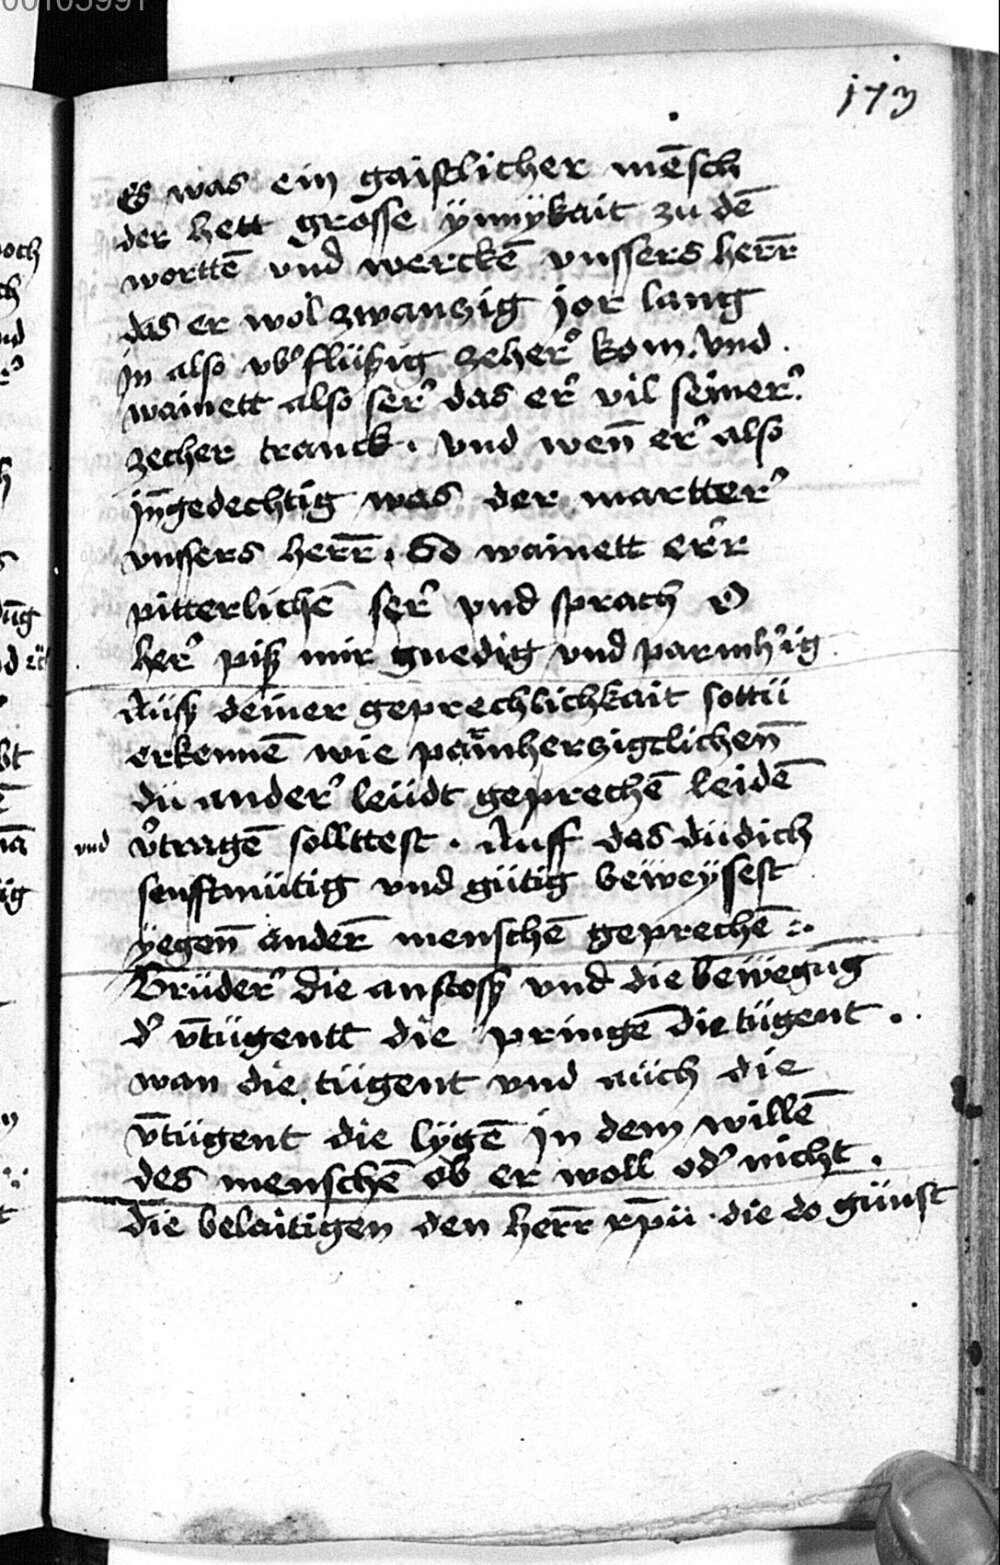 173
Es was ein gaistlicher mēsch
der hett grosse ÿnnÿkait zu dē
worttē vnd werckē vnssers herr̄
das er wol zwanzig jor lang
jn also vb̾flüssig zeher̾ kom. vnd
wainett also ser̾ das er̾ vil seiner̾
zecher tranck. vnd wen̄ er̾ also
jn̄gedechtig was der martter̾
vnssers herr̄. So wainett er̾r
pitterlichē ser̾ vnd sprach O
her̾ piß mir gnedig vnd parmh̾ig
Auß deiner geprechlichkait sottü
erkennē wie parmherzigclichen̄
dü ander̾ leüdt geprechē leidē
vnd v̾tragē sollttest. Auff das dü dich
senfftmütig vnd gütig beweÿsest
ÿegen̄ ander̄ menschē geprechē :.
Brüder̾ die anstoß vnd die bewegūg
d̾ v̄tügentt die pringē die tügent.
wan die tügent vnd auch die
v̄tügent die lÿgē jn dem willē
des menschē ob er woll od̾ nicht.
die belaitigen den herr̄ xp̄ü. die do günst